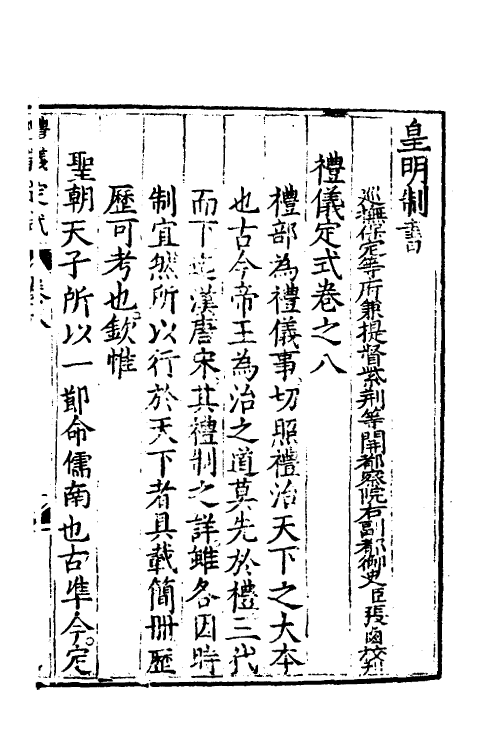 皇明制書
巡撫保定等府兼提督紫荆等關都察院右副都御史臣張鹵校刋
禮儀定式卷之八
禮部為禮儀事切照禮治天下之大本
也古今帝王為治之道莫先於禮三代
而下迄漢唐宋其禮制之詳雖各因時
制宜然所以行於天下者具載簡冊歷
歷可考也欽惟
聖朝天子所以一鄭命儒南也古凖今定
禮儀定式 卷八